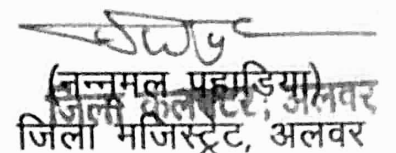 (नन्नूमल पहाड़िया)
जिला कलेक्टर, अलवर
जिला मजिस्ट्रेट, अलवर